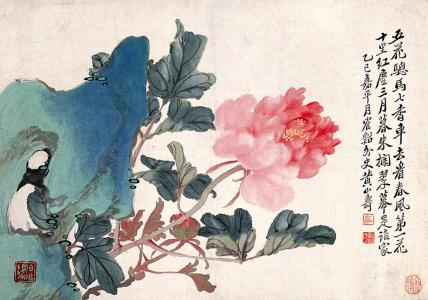 五花驄馬七香車去看春風第一花
十里紅塵三月暮朱欄翠幕是誰家
乙巳嘉平月　旭遲外史黃山壽